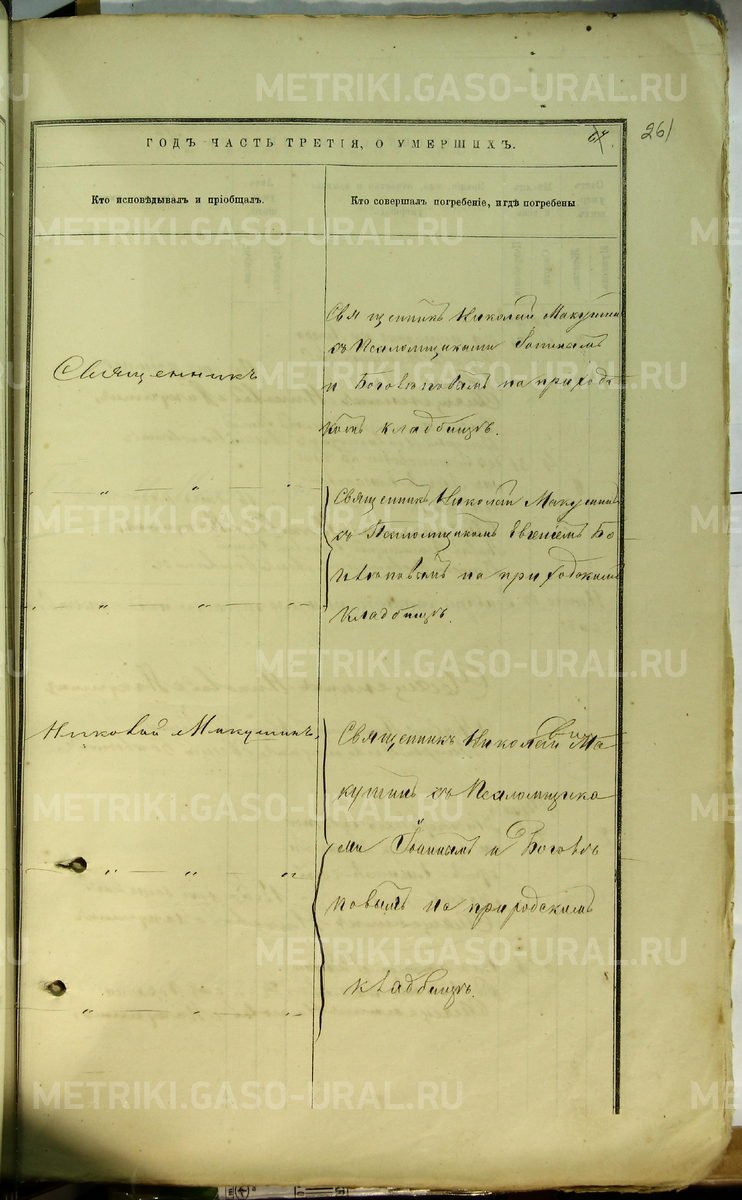 METRIKI.GASO-URAL.RU
ГОДЪ ЧАСТЬ ТРЕТІЯ, О УМЕРШИХЪ.
261
Кто исповѣдывалъ и пріобщалъ.
Кто совершалъ погребеніе, и гдѣ погребены
Священникъ
Священникъ Николай Макушинъ
съ Псаломщиками
и на приходс
комъ кладбищѣ.
Священникъ Николай Макушинъ
съ Псаломщикомъ Евгеніемъ Бо
на приходскимъ
кладбищѣ.
Николай Макушинъ.
Священникъ Николай Ма
кушинъ съ Псаломщика
ми Іоанномъ и Боговѣ
повымъ на приходскимъ
кладбищѣ.